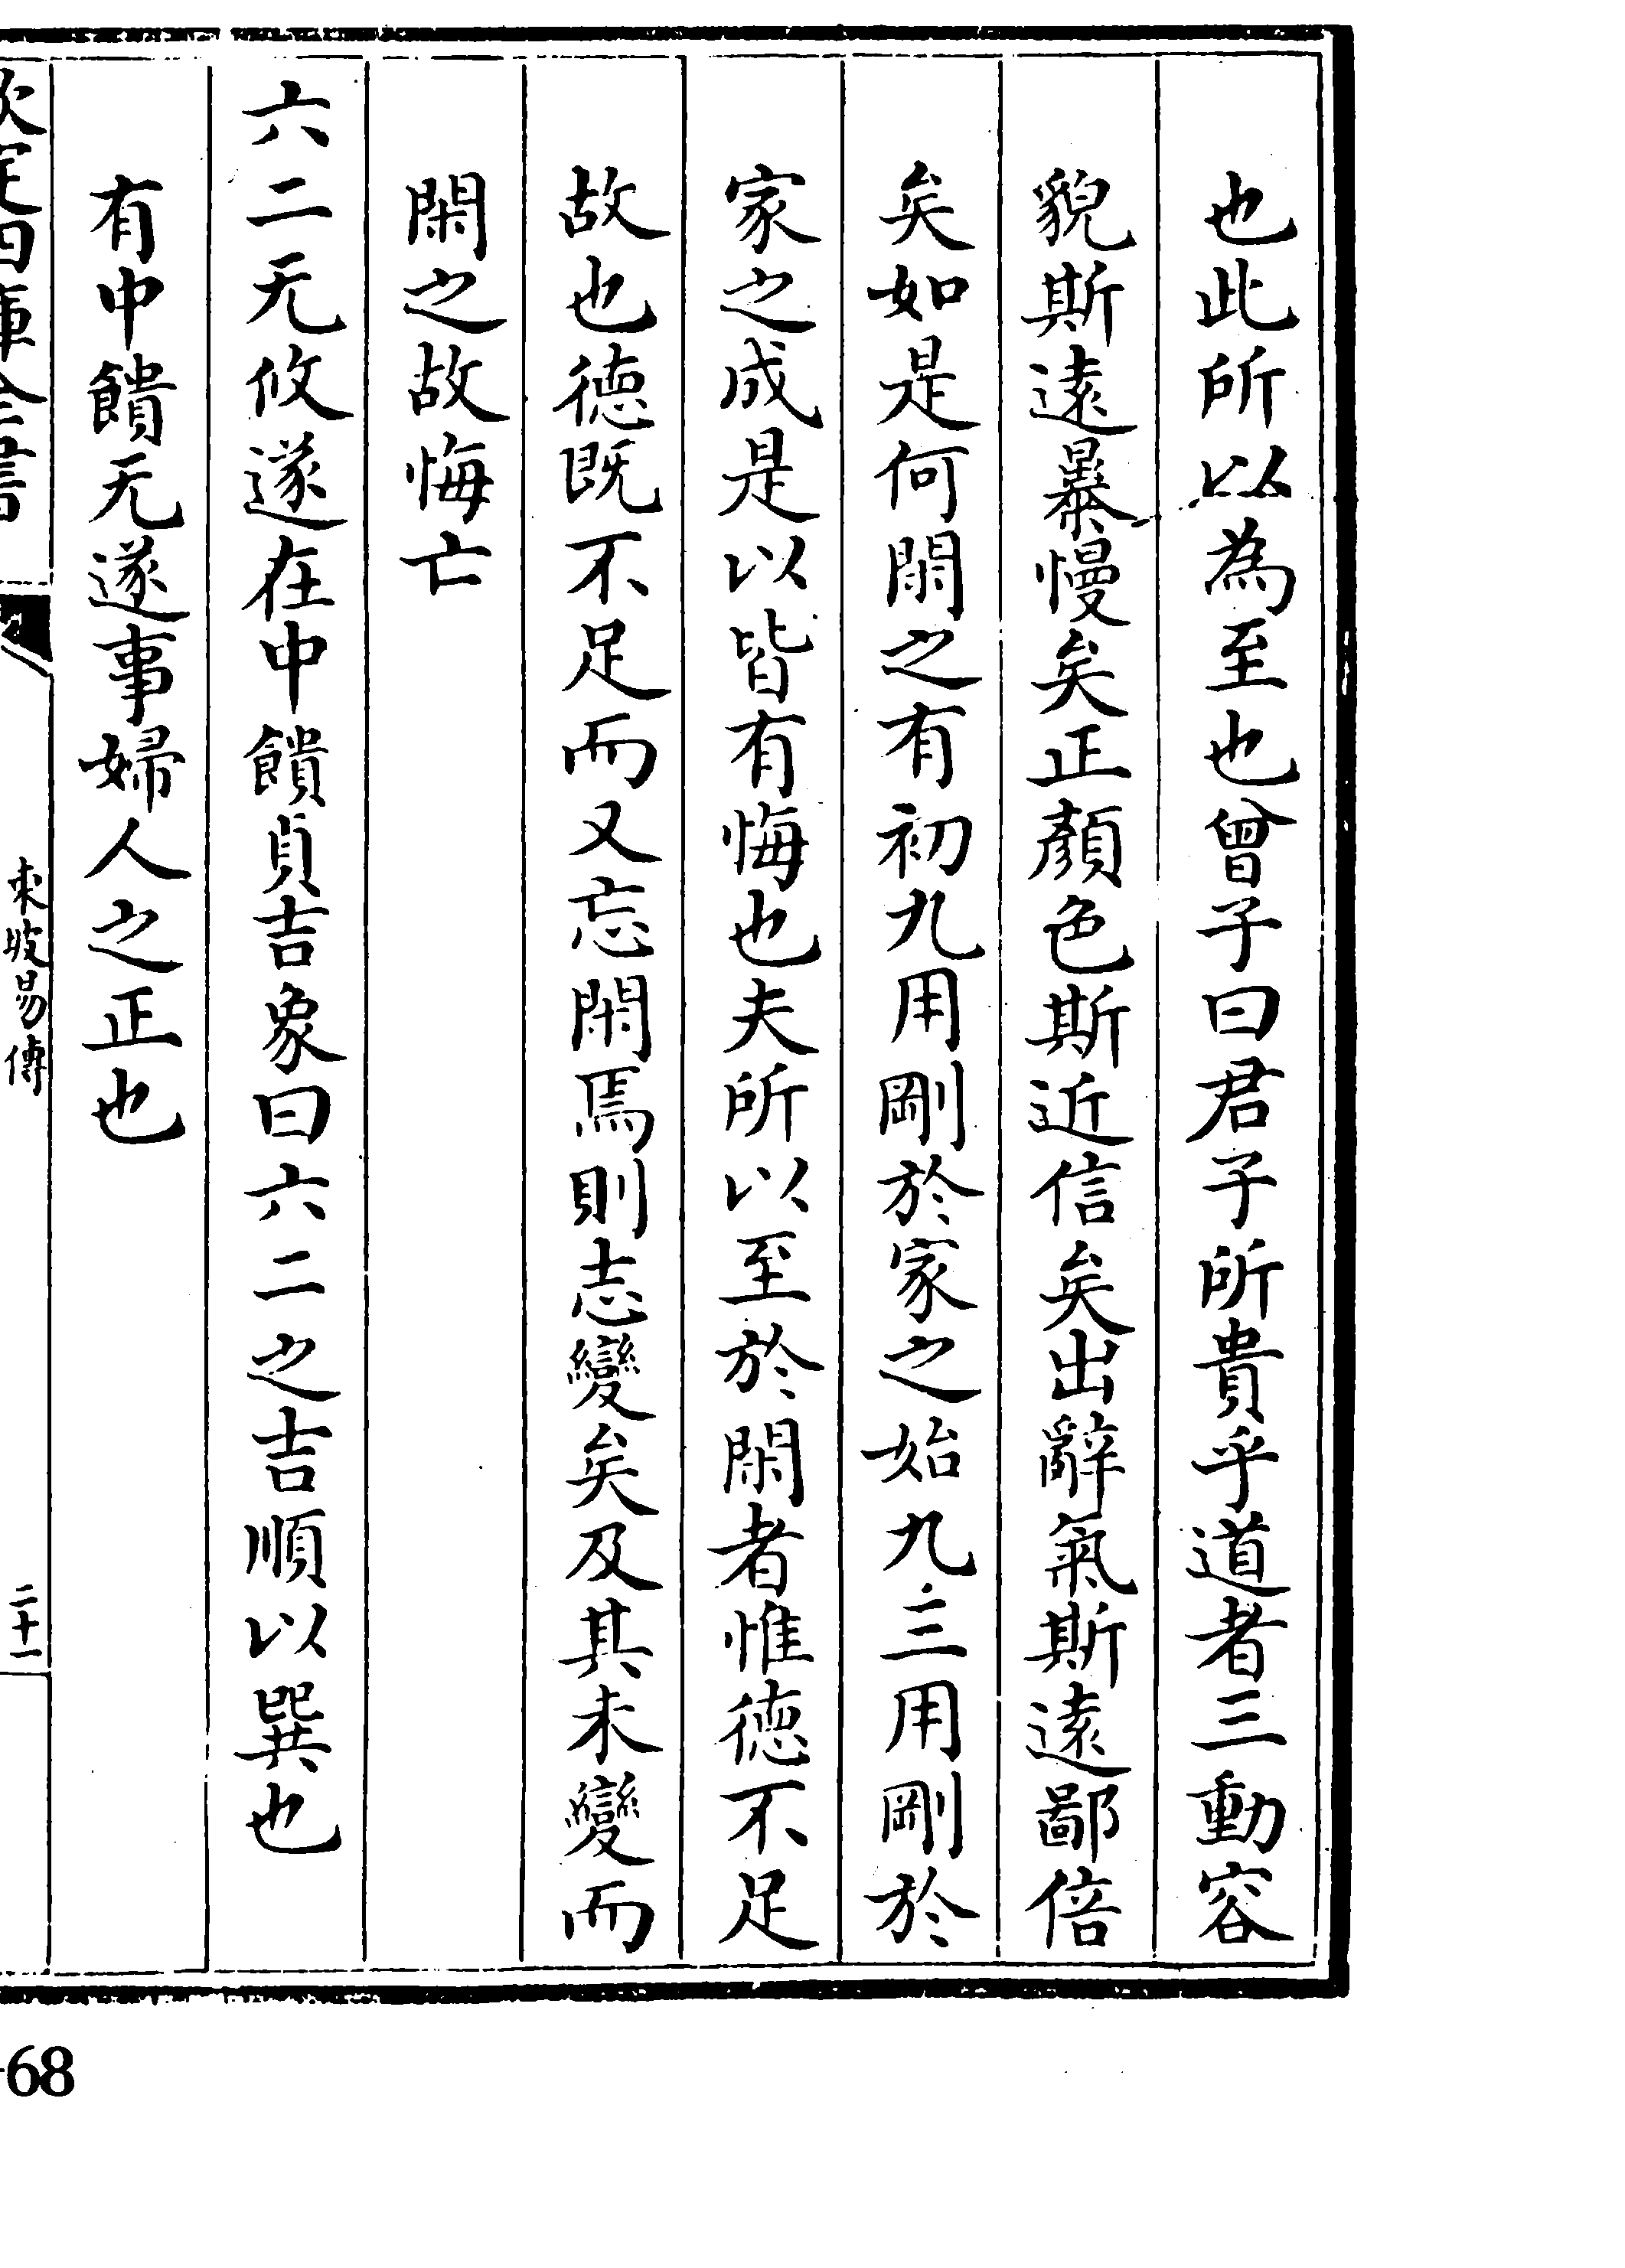 也此所以為至也曾子曰君子所貴乎道者三動容
貌斯逺暴慢矣正顏色斯近信矣出辭氣斯逺鄙倍
矣如是何閑之有初九用剛於家之始九三用剛於
家之成是以皆有悔也夫所以至於閑者惟徳不足
故也徳既不足而又忘閑焉則志變矣及其未變而
閑之故悔亡
六二无攸遂在中饋貞吉象曰六二之吉順以巽也
有中饋无遂事婦人之正也
欽定四庫全書
東坡易傳
二十一
68